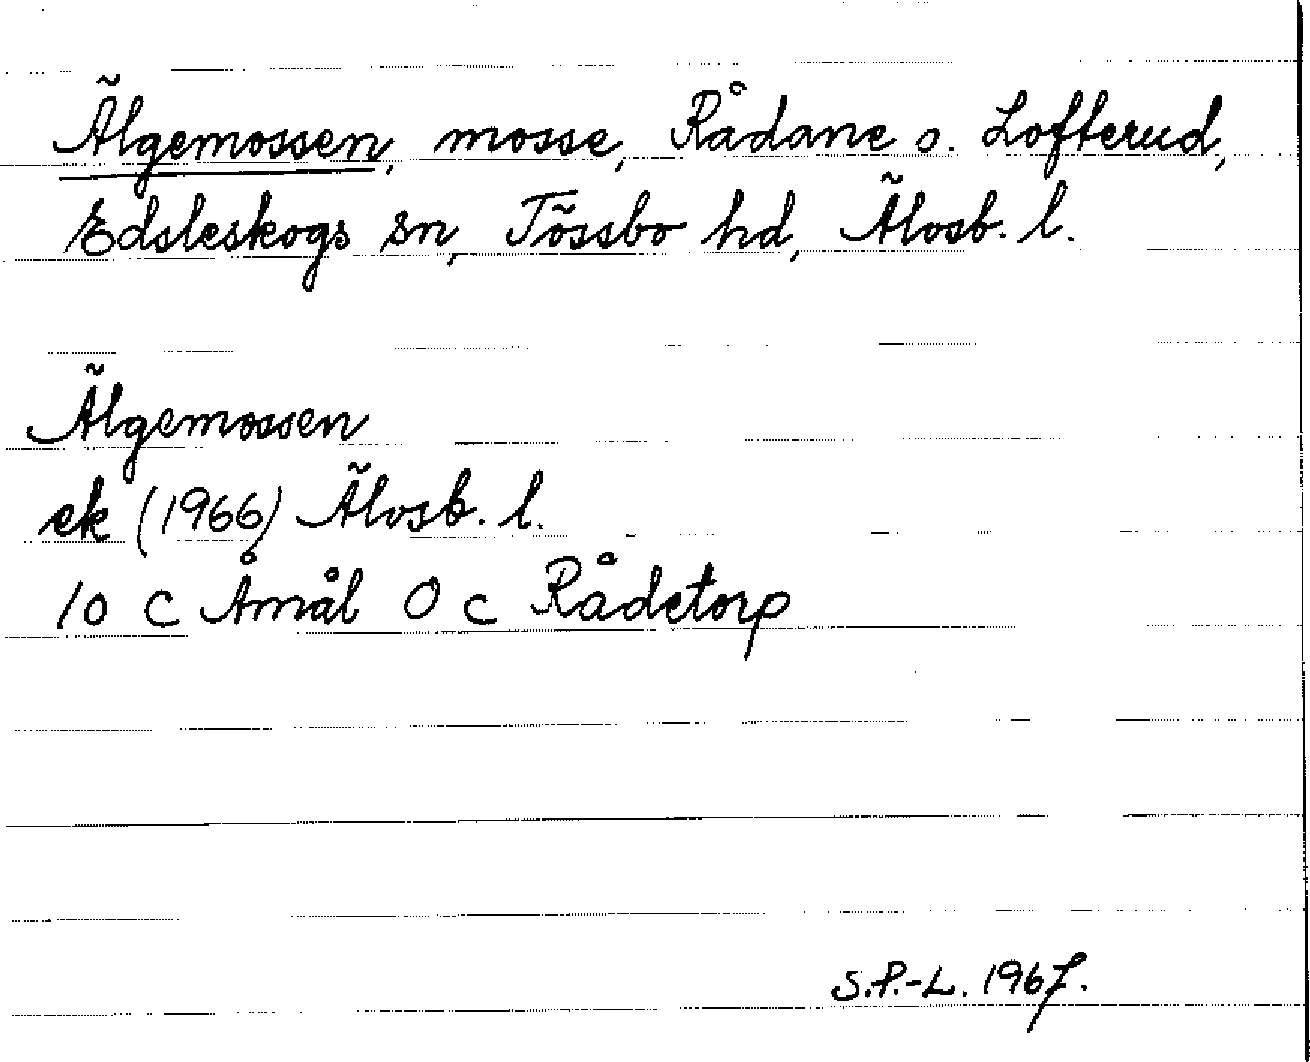 Älgemossen, mosse, Rådane o. Lofterud,
Edsleskogs sn, Tössbo hd, Älvsb. l.
Älgemossen
ek (1966) Älvsb. l.
10 C Åmål 0 c Rådetorp
S.P.-L. 1967.